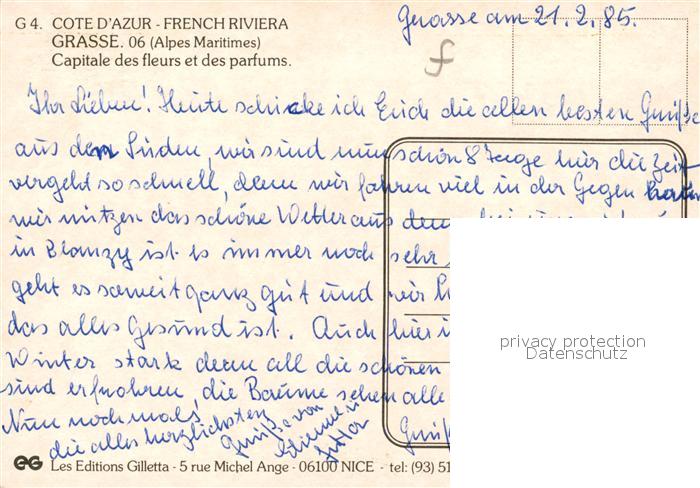 G 4. COTE D'AZUR - FRENCH RIVIERA
GRASSE. 06 (Alpes Maritimes)
Capitale des fleurs et des parfums.
Grasse am 21. 2. 85.
f
Ihr Lieben! Heute schicke ich Euch die allen besten Grüße
aus dem Süden, wir sind nun schon 8 Tage hier die Zeit
vergeht so schnell, denn wir fahren viel in der Gegen herum
wir nützen das schöne Wetter aus denn
in Blanzy ist es immer noch sehr
geht es soweit ganz gut und wir
das alles Gesund ist. Auch hier
Winter stark denn all die schönen
sind erfrohren, die Bäume sehen alle
Nun nochmals
die alles herzlichsten
Grüße von
Etienne u
Grüß
privacy protection
Datenschutz
EG Les Editions Gilletta - 5 rue Michel Ange - 06100 NICE - tel: (93) 51